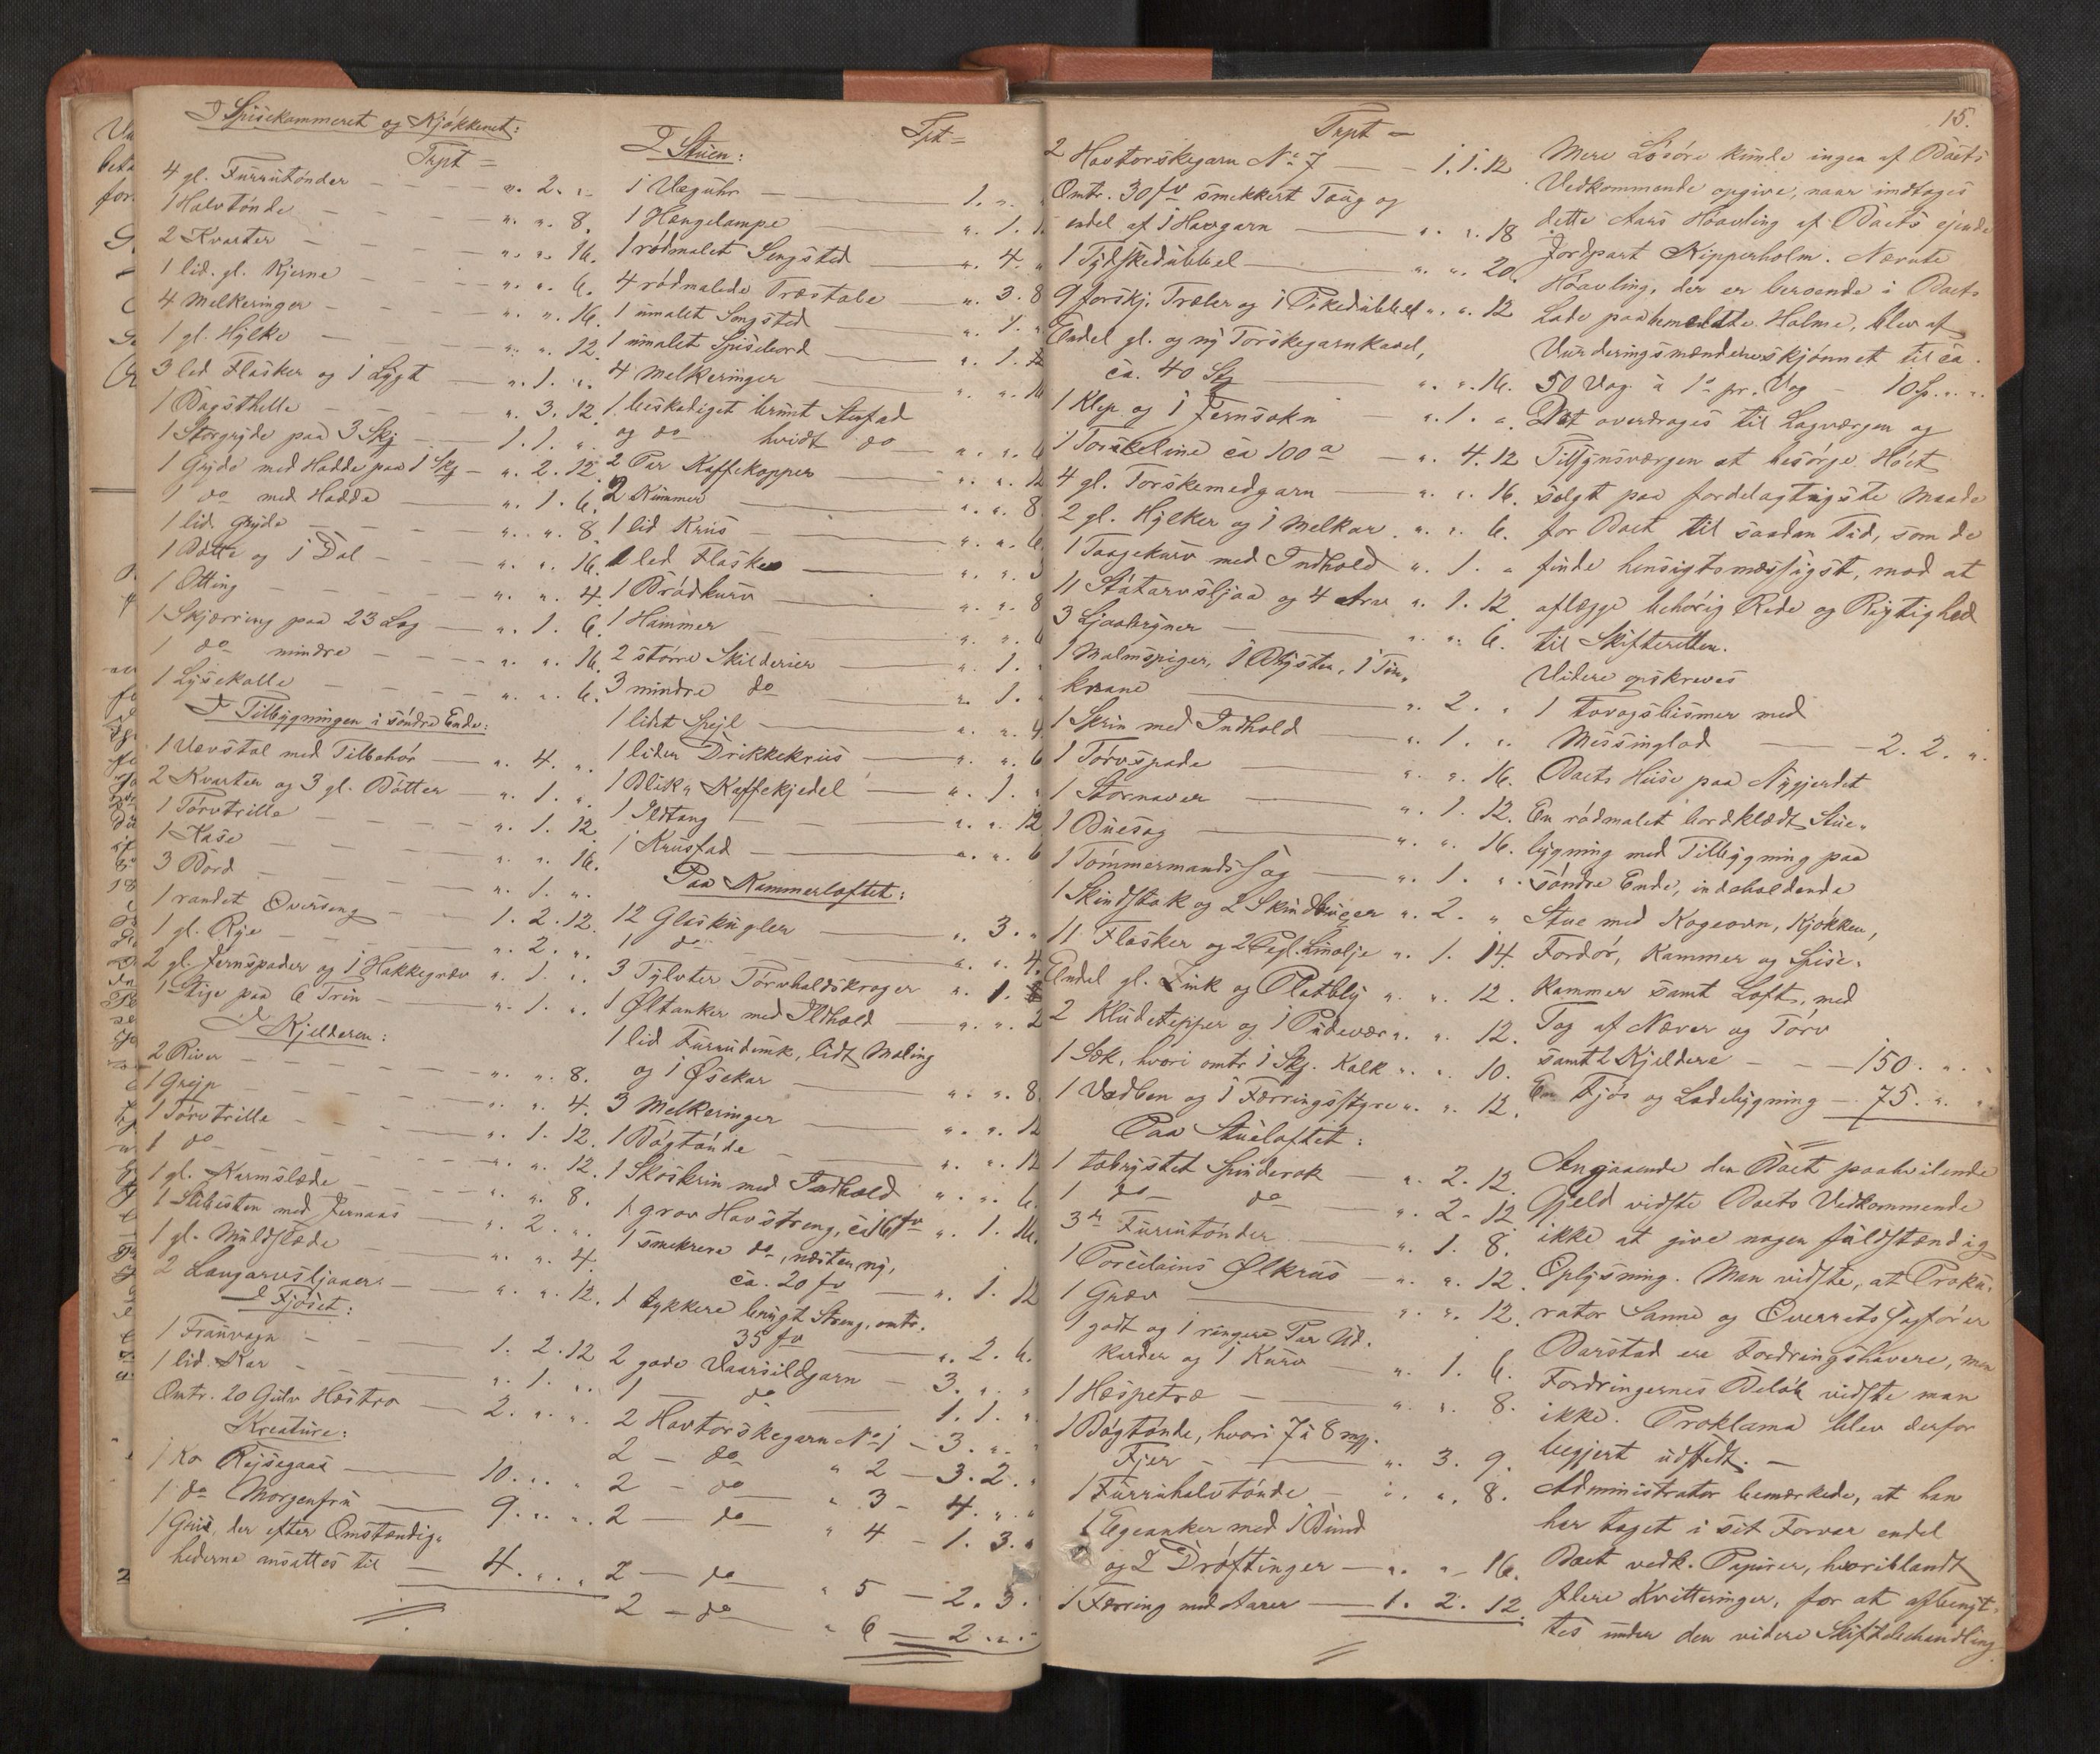 I Spisekammeret og Kjøkkenet:
Trpt =
4 gl. Furrutønder — „. 2. „.
1 Halvtønde — „. „. 8.
2 Kvarter — „. „. 16.
1 lid. gl. Kjerne — „. „. 6.
4 Melkeringer — „. „. 16.
1 gl. Hylke — „. „. 12.
3 led Flasker og 1 Lygt — „. 1. „.
1 Bagsthelle — „. 3. 12.
1 Storgryde paa 3 Skj — 1. 1. „.
1 Gryde med Hadde paa 1 Skj — „. 2. 12.
1 do med Hadde — „. 1. 6.
1 lid. Gryde — „. „. 8.
1 Bøtte og 1 Dal — „. „. 16.
1 Otting — „. „. 4.
1 Skjærring paa 23 Lag — „. 1. 6.
1 do mindre — „. „. 16.
1 Lysekalle — „. „. 6.
I Tilbygningen i søndre Ende:
1 Vævstol med Tilbehør — „. 4. „.
2 Kvarter og 3 gl. Bøtter — „. 1. „.
1 Tørvtrille — „. 1. 12.
1 Kase — „. „. 16.
3 Bord — „. 1. „.
1 randet Overseng — 1. 2. 12.
1 gl. Rye — „. 2. „.
2 gl. Jernspader og 1 Hakkegræv „. 1. „.
1 Stige paa 6 Trin — „. 1. „.
I Kjelderen:
2 River — „. „. 8.
1 Greip — „. „. 4.
1 Tørvtrille — „. 1. 12.
1 do — „. „. 12.
1 gl. Karmslæde — „. „. 8.
1 Slibesten med Jernaas — „. 2. „.
1 gl. Muldslæde — „. „. 4.
2 Langarvsljaaer — „. „. 12.
I Fjøset:
1 Trauvogn — 1. 2. 12
1 lid. Kar — „. 1. „.
Omtr. 20 Gulv Hæstro — 2. „. „.
Kreature:
1 Ko Rejsegaas — 10. „. „.
1 do Morgenfru — 9. „. „.
1 Gris, der efter Omstændig„
hederne ansattes til — 4. „. „.
I Stuen:
Trpt =
1 Væguhr — 1. „.
1 Hængelampe — „. 1. 1
1 rødmalet Sengsted — „. 4. „
4 rødmalede Træstole — „. 3. 8
1 umalet Sengsted — „. 1. „
1 umalet Spisebord — „. 1. 12
4 Melkeringer — „. „. 16
1 beskadiget brunt Stenfad
og do hvidt do — „. „. 6
2 Par Kaffekopper — „. „. 12
2 Kummer — „. „. 8
1 lid Krus — „. „. 6
1 led Flaske — „. „. 3
1 Brødkurv — „. „. 8
1 Hammer — „. „. 6
2 større Skilderier — „. 1.
3 mindre do — „. 1. „
1 lidet Spejl — „. „. 4
1 liden Drikkekrus — „. „. 6
1 Blik„ Kaffekjedel — „. 1. „
1 Ildtang — „. „. 12
1 Krusfad — „. „. 6
Paa Kammerloftet:
12 Glaskugler — „. 3. „
1 do — „. „. 4.
3 Tylvter Tørvholdskroger — „. 1. 8
1 Øltanker med Ildhold — „. „. 2
1 lid Furrudunk, lidt Maling
og 1 Øsekar — „. „. 8.
3 Melkeringer — „. „. 12
1 Bøgtønde — „. „. 12
1 Skoskrin med Indhold — „. „. 6.
1 grov Havstreng, ca 16 fv „. 1. 16.
1 smekrere do, næsten ny,
ca. 20 fv — „. 1. 12
1 tykkere benygt Streng, omtr.
35 fv — „. 2. 6.
2 gode Vaarsildgarn — 3. „. „
1 — do — 1. 1. „.
2 Havtorskegarn No 1 — 3. „.
2 — do „ 2 — 3. 2. „
2 — do „ 3 — 4. „. „
2 — do „ 4 — 1. 3. „
2 — do — „ 5 — 2. 3.
2 — do „ 6 — 2. „. „
15.
Trpt =
2 Havtorskegarn No 7 — 1. 1. 12
Omtr. 30 fv smekkert Toug og
endel af 1 Havgarn — „. „. 18
1 Tydskedubbel — „. „. 20.
9 forskj. Træler og 1 Pikedubbel „. „. 12
Endel gl. og ny Torskegarnkavl,
ca. 40 Stk — „. „. 16.
1 Klep og 1 Jernsokn — „. 1. „.
1 Torskeline ca 100 a — „. 4. 12
4 gl. Torskemedgarn — „. „. 16.
2 gl. Hylker og 1 Melkar „. „. 6.
1 Taagekurv med Indhold „. 1. „
11 Státarvsljaa og 4 Arv „. 1. 12
3 Ljaabryner — „. „. 6.
1 Malmspiger, 1 Thyster, 1 Tin„
krane — „. 2. „
1 Skrin med Indhold — „. 1. „.
1 Tørvspade — „. „. 16.
1 Stornaver — „. 1. 12.
1 Buesag — „. „. 16.
1 Tømmermandssag — „. 1. „.
1 Skindstak og 2 Skindbuxer „. 2. „
11 Flasker og 2 Pegl. Linolje „. 1. 14.
Endel gl. Zink og Platbly „. „. 12.
2 Kludetepper og 1 Pudevær „. „. 12.
1 Sæk, hvori omtr 1 Skj. Kalk „. „. 10.
1 Vædben og 1 Færringsstyre „. „. 12.
Paa Stueloftet:
1 tobrystet Spinderok — „. 2. 12.
1 do do — „. 2. 12
3 Furrutønder — „. 1. 8.
1 Porcelains Ølkrus — „. „. 12.
1 Græv — „. „. 12.
1 godt og 1 ringere Par Ul„
karder og 1 Kurv — „. 1. 6.
1 Hespetræ — „. „. 8.
1 Bøgtønde, hvori 7 à 8 mp.
Fjer — „. 3. 9.
1 Furruhalvtønde — „. „. 8.
1 Egeanker med 1 Bund
og 2 Drøftinger — „. „. 16.
1 Færring med Aarer — 1. 2. 12.
Mere Løsøre kunde ingen af Boets
Vedkommende opgive, naar indtages
dette Aars Høavling af Boets ejende
Jordpart Kipperholm. Nævnte
Høavling, der er beroende i Boets
Lade paa bemeldte Holme, blev af
Vurderingsmændene skjønnet til ca.
50 Vog à 1 o pr. Vog — 10 Sp. „. „.
Det overdroges til Lagværgen og
Tilsynsværgen at besørge Høet
solgt paa fordelagtigste Maade
for Boet til saadan Tid, som de
finde hensigtsmæssigst, mod at
aflægge behørig Rede og Rigtighed
til Skifteretten.
Videre opskreves
1 Tovogsbismer med
Messinglod — 2. 2. „.
Boets Huse paa Nygjerdet
En rødmalet bordklædt Stue„
bygning med Tilbygning paa
søndre Ende, indeholdende
Stue med Kogeovn, Kjøkken,
Fordør, Kammer og Spise„
kammer samt Loft, med
Tag af Næver og Tørv
samt 2 Kjeldere — 150. „. „
En Fjøs og Ladebygning — 75. „. „
Angaaende den Boet paahvilende
Gjeld vidste Boets Vedkommende
ikke at give nogen fuldstændig
Oplysning. Man vidste, at Proku„
rator Sanne og Overretssagfører
Barstad ere Fordringshavere, men
Fordringernes Beløb vidste man
ikke. Proklama blev derfor
begjert udstedt. —
Administrator bemærkede, at han
har taget i sit Forvar endel
Boet vedk. Papirer, hvoriblandt
flere Kvitteringer, for at afbenyt„
tes under den videre Skiftebehandling